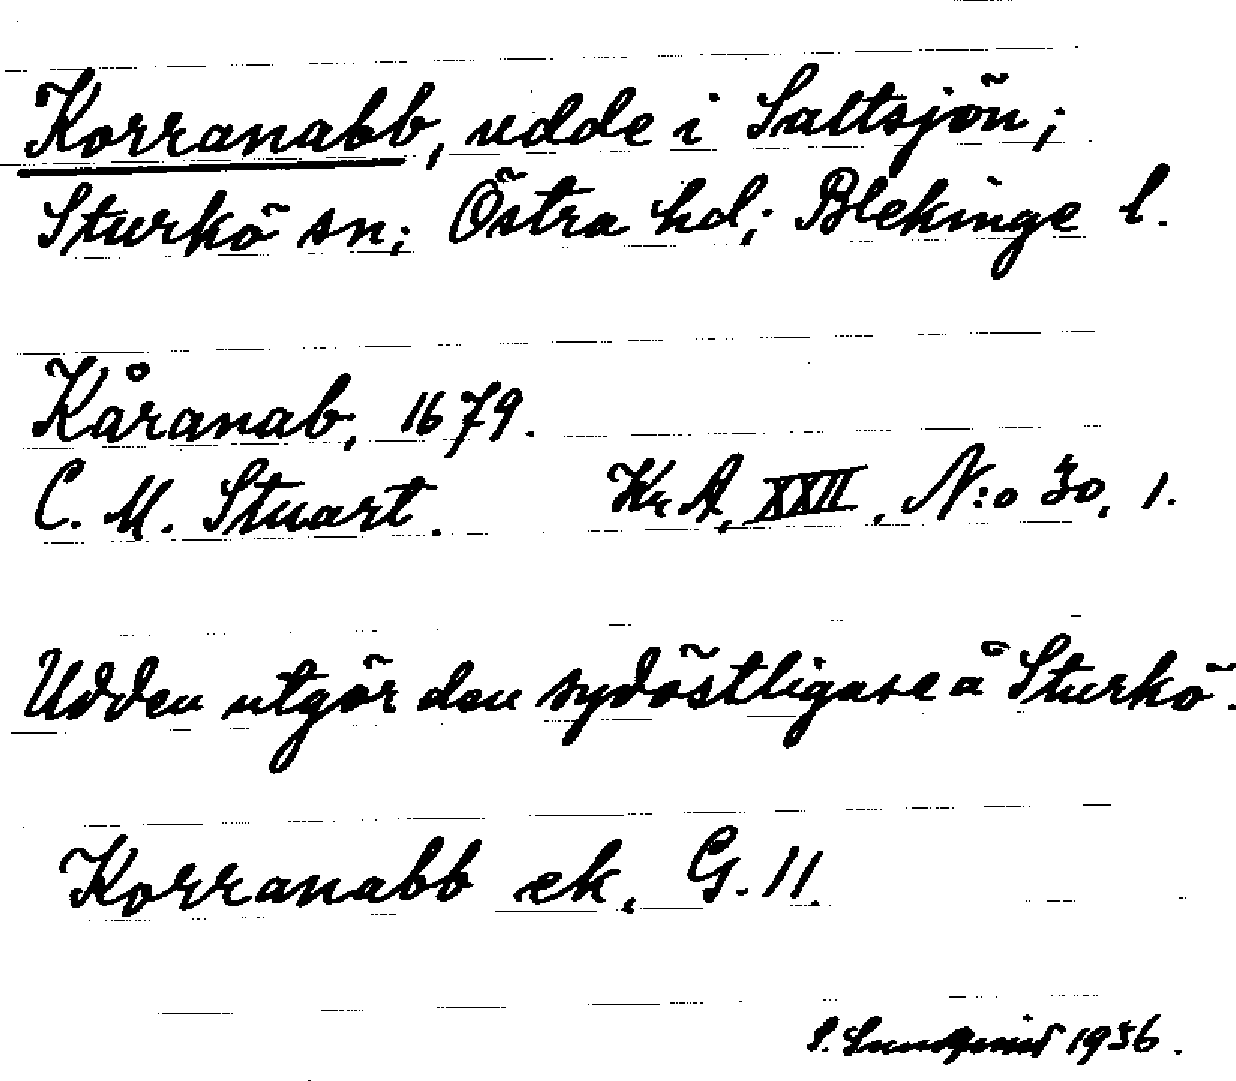 Korranabb, udde i Saltsjön;
Sturkö sn; Östra hd; Blekinge l.
Kåranab, 1679.
C. M. Stuart. KrA, XXII, N:o 30, 1.
Udden utgör den sydöstligare å Sturkö.
Korranabb ek, G. 11.
P. Lundqvist 1956.